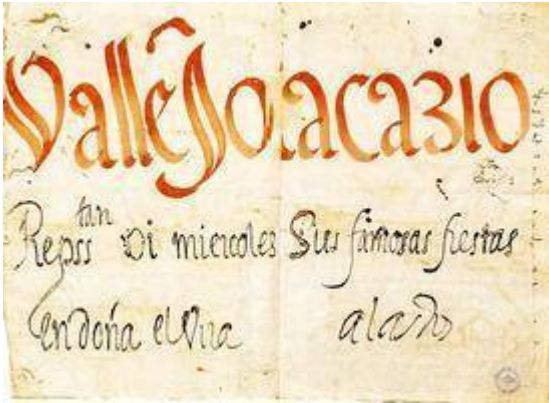 Vallejo iacazio
Repsstan oi miercoles Sus famosas fiestas
en doña elvira a las dos